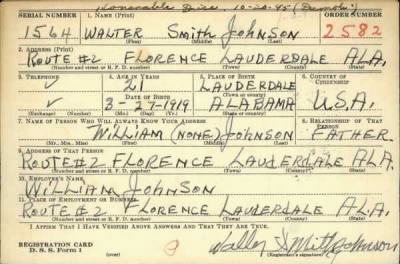 Honorable Disc. 10-20-45 (Demob.)
SERIAL NUMBER 1. NAME (Print) ORDER NUMBER
1564 WALTER SMITH JOHNSON 2582
(First) (Middle) (Last)
2. ADDRESS (Print)
ROUTE #2 FLORENCE LAUDERDALE ALA.
(Number and street or R. F. D. number) (Town) (County) (State)
3. TELEPHONE 4. AGE IN YEARS 5. PLACE OF BIRTH 6. COUNTRY OF CITIZENSHIP
✓ 21 LAUDERDALE
DATE OF BIRTH (Town or county)
✓ 3-27-1919 ALABAMA U.S.A.
(Mo.) (Day) (Yr.) (State or country)
7. NAME OF PERSON WHO WILL ALWAYS KNOW YOUR ADDRESS 8. RELATIONSHIP OF THAT PERSON
WILLIAM (NONE) JOHNSON FATHER.
(Mr., Mrs., Miss) (First) (Middle) (Last)
9. ADDRESS OF THAT PERSON
ROUTE #2 FLORENCE LAUDERDALE ALA.
(Number and street or R. F. D. number) (Town) (County) (State)
10. EMPLOYER'S NAME
WILLIAM JOHNSON
11. PLACE OF EMPLOYMENT OR BUSINESS
ROUTE #2 FLORENCE LAUDERDALE ALA.
(Number and street or R. F. D. number) (Town) (County) (State)
I AFFIRM THAT I HAVE VERIFIED ABOVE ANSWERS AND THAT THEY ARE TRUE.
REGISTRATION CARD
D. S. S. Form 1
Walter Smith Johnson
(Registrant's signature)